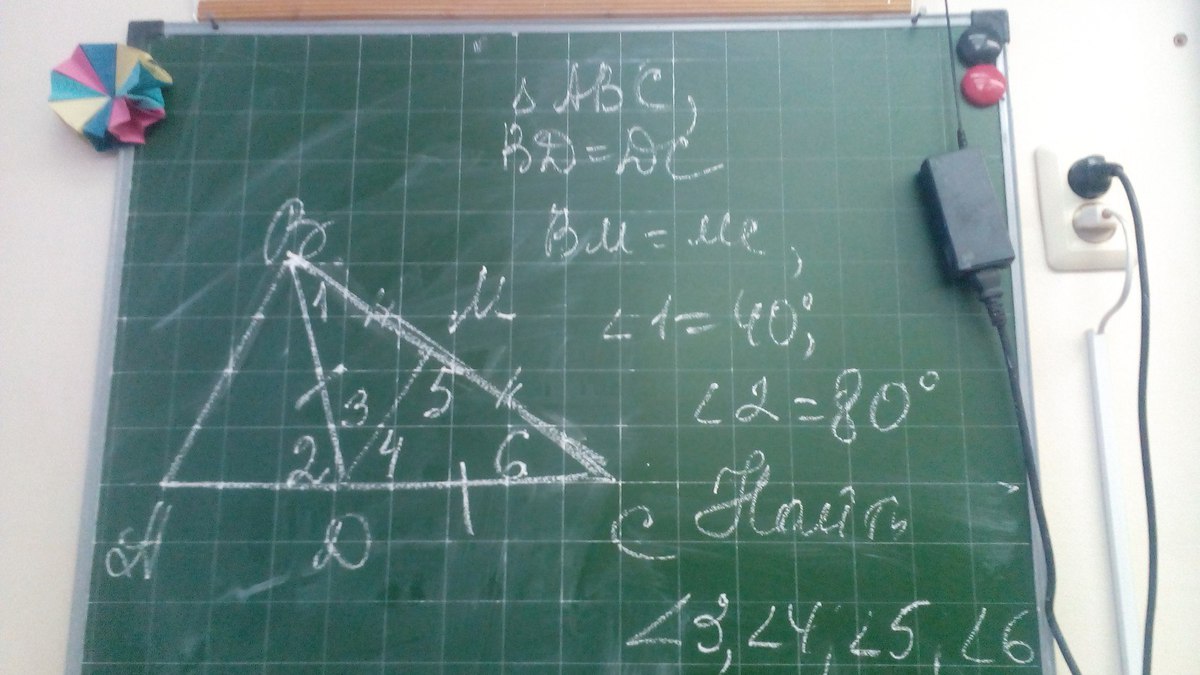 △ ABC,
BD = DC
BM = MC,
∠1 = 40°;
∠2 = 80°
Найти
∠3, ∠4, ∠5, ∠6
B
M
1
3
5
2
4
6
A
D
C